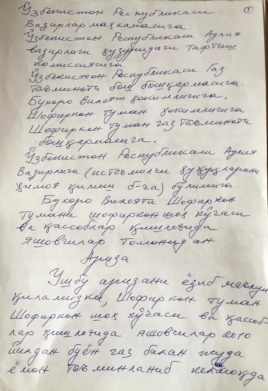 1
Ўзбекистон Республикаси
Вазирлар маҳкамасига.
Ўзбекистон Республикаси Адлия
вазирлиги ҳузуридаги Тартиш
комиссияси
Ўзбекистон Республикаси Газ
таъминоти бош бошқармасига.
Бухоро вилоят ҳокимлигига.
Шофиркон туман ҳокимлигига
Шофиркон туман газ таъминоти
бошқармасига.
Ўзбекистон Республикаси Адлия
Вазирлиги (истеъмолчи ҳуқуқларини
ҳимоя қилиш б-га) бўлимига
Бухоро Вилояти Шофиркон
Тумани Шофиркон шоҳ кўчаси
ва қассоблар қишлоғида
яшовчилар томонидан
Ариза
Ушбу аризани ёзиб маълум
қиламизки, Шофиркон туман
Шофиркон шоҳ кўчаси ва қассоб
лар қишлоғида яшовчилар 2010
йилдан буён газ билан жуда
ёмон таъминланиб келмоқда